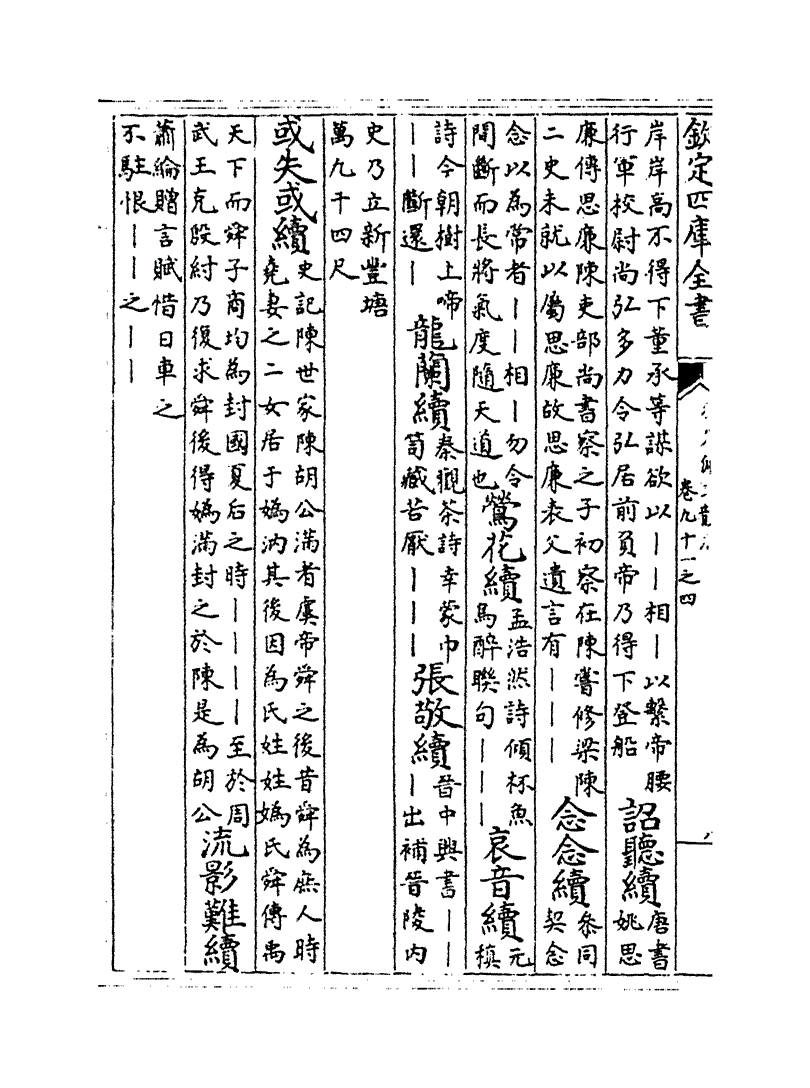 欽定四庫全書
卷九十一之四
岸岸高不得下董承等謀欲以丨丨相丨以繫帝腰
行軍校尉尚弘多力令弘居前負帝乃得下登船
詔聽續
唐書
姚思
廉傳思廉陳吏部尚書察之子初察在陳嘗修梁陳
二史未就以屬思廉故思廉表父遺言有丨丨丨
念念續
參同
契念
念以為常者丨丨相丨勿令
間斷而長將氣度隨天道也
鶯花續
孟浩然詩傾杯魚
鳥醉聯句丨丨丨
哀音續
元
稹
詩今朝樹上啼
丨丨斷還丨
龍蘭續
秦觀茶詩幸蒙巾
笥藏苦厭丨丨丨
張敬續
晉中興書丨丨
丨出補晉陵内
史乃立新豐塘
萬九千四尺
或失或續
史記陳世家陳胡公滿者虞帝舜之後昔舜為庶人時
堯妻之二女居于媯汭其後因為氏姓姓媯氏舜傳禹
天下而舜子商均為封國夏后之時丨丨丨丨至於周
武王克殷紂乃復求舜後得媯滿封之於陳是為胡公
流影難續
蕭綸贈言賦惜日車之
不駐恨丨丨之丨丨